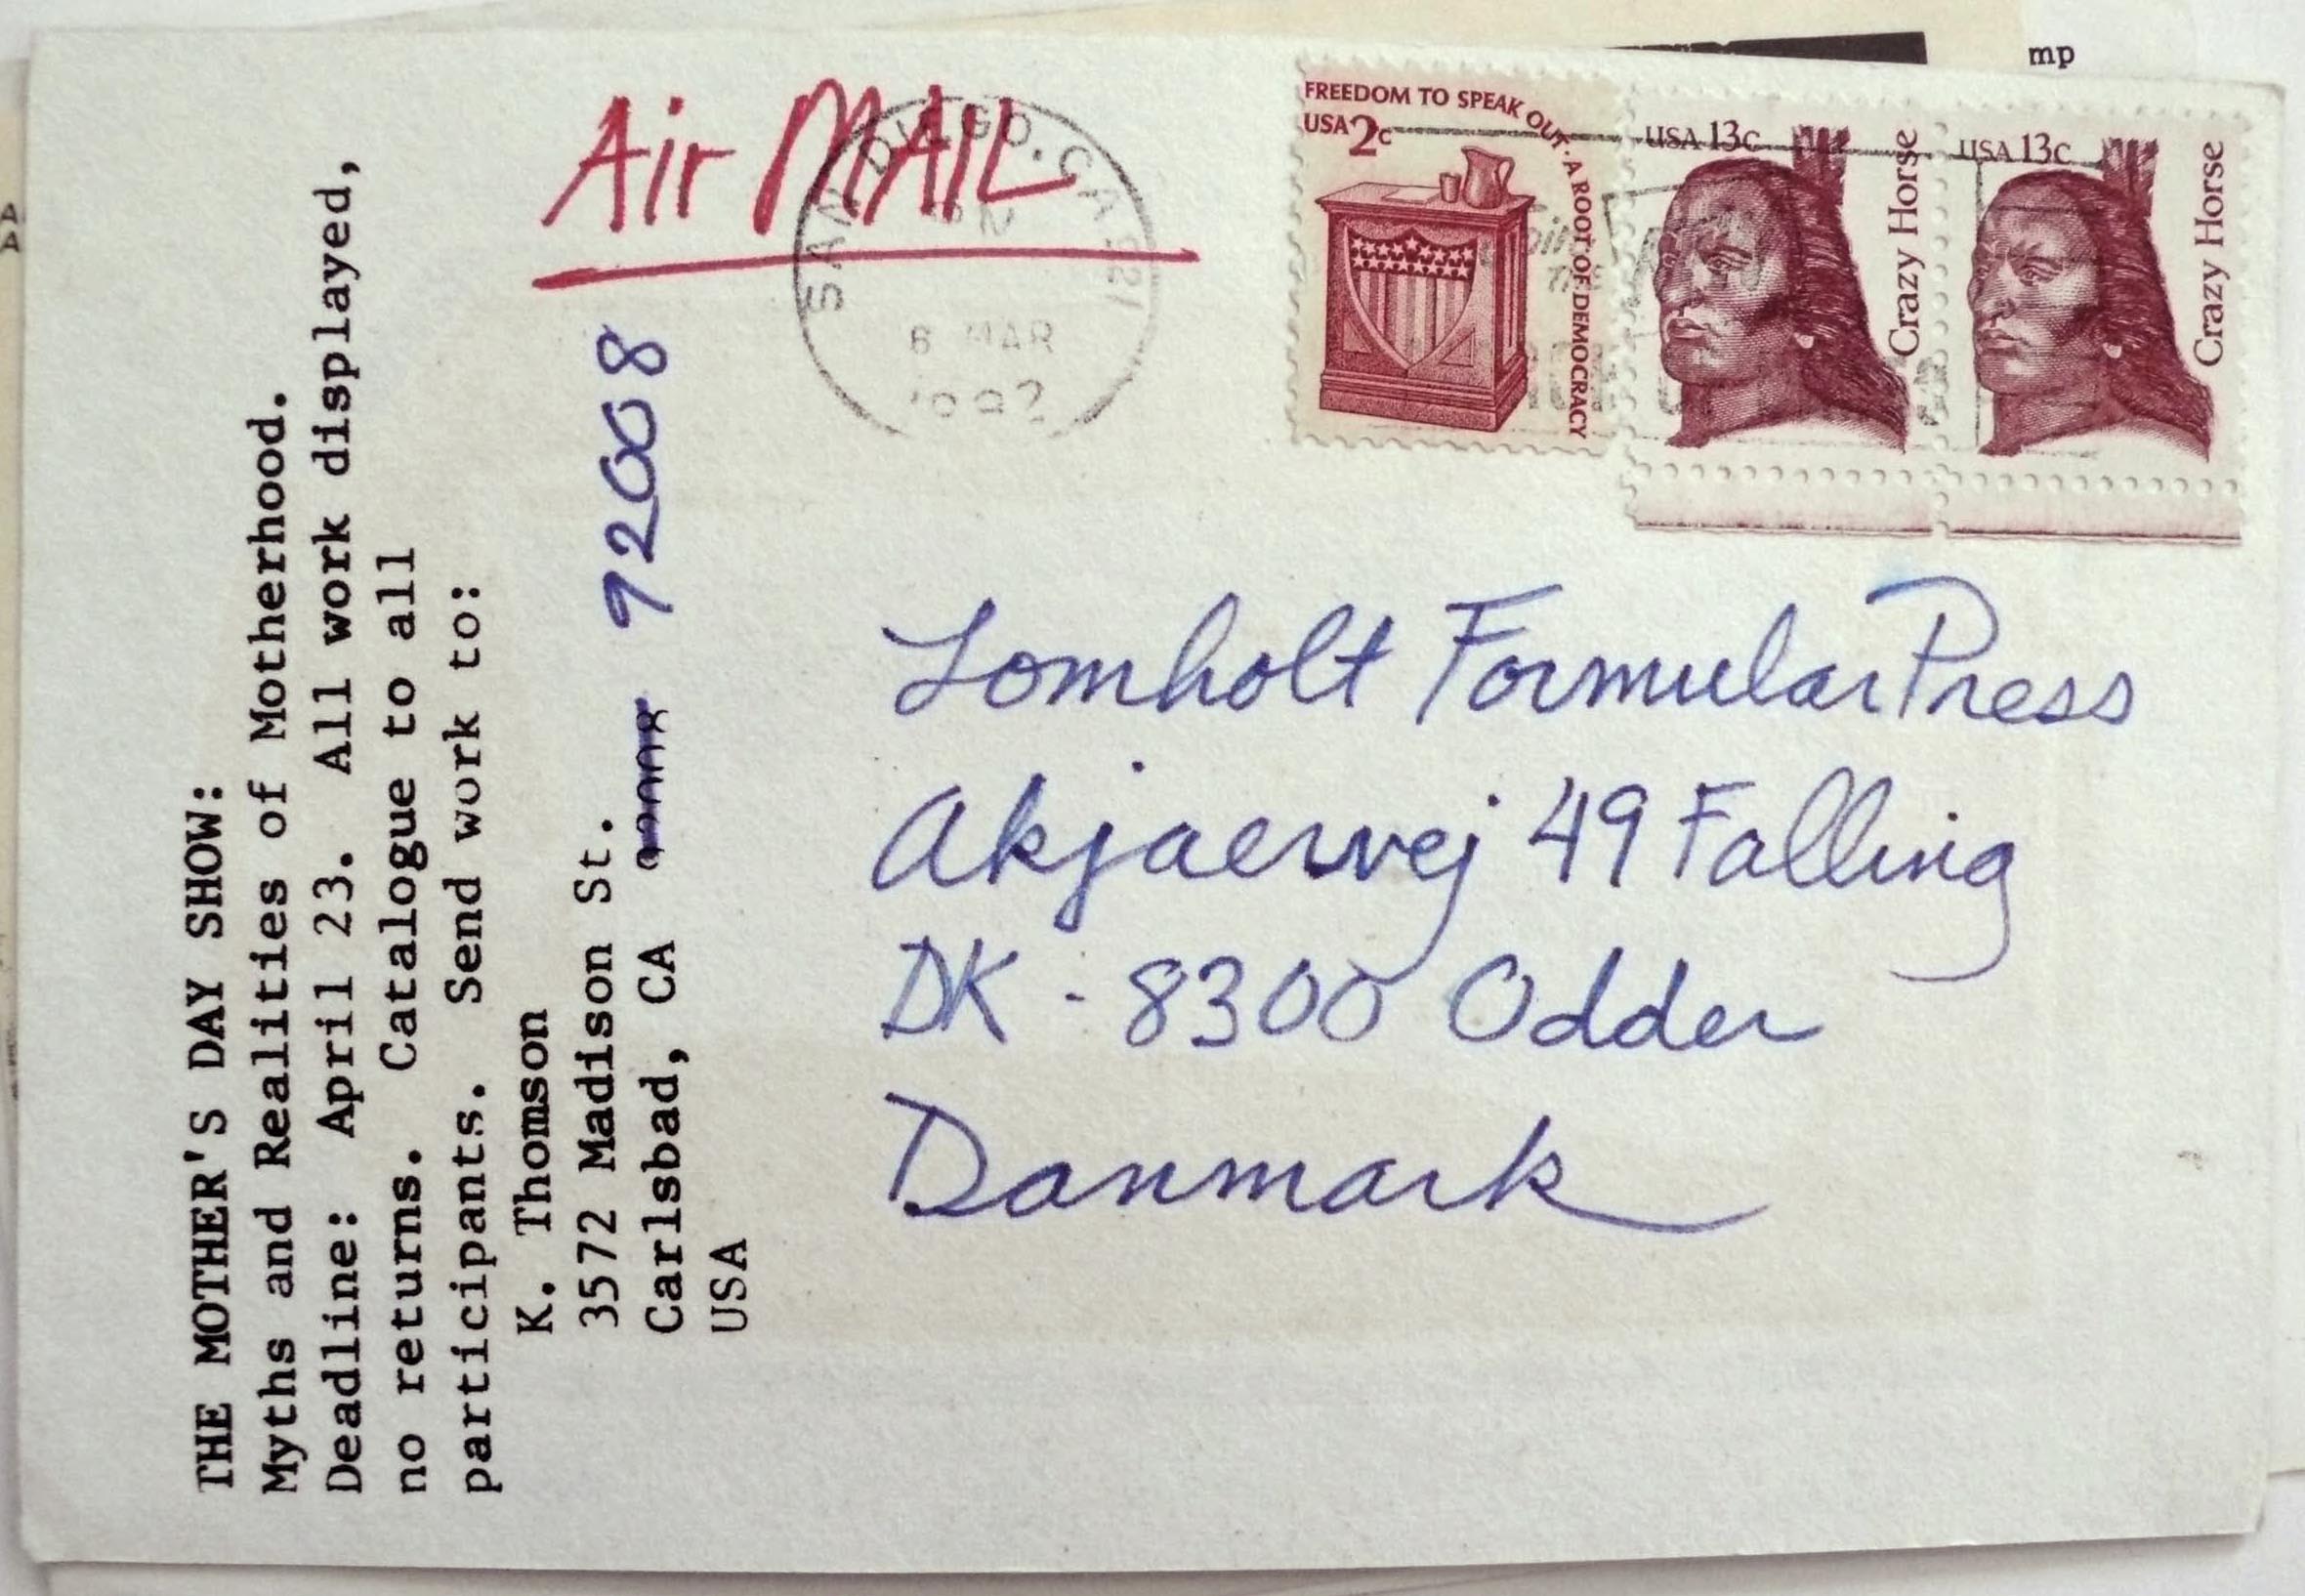 THE MOTHER'S DAY SHOW:
Myths and Realities of Motherhood.
Deadline: April 23. All work displayed,
no returns. Catalogue to all
participants. Send work to:
K. Thomson
3572 Madison St.
Carlsbad, CA 92008
USA
Air MAIL
SAN DIEGO, CA 921
6 MAR
FREEDOM TO SPEAK OUT · A ROOT OF DEMOCRACY
USA 2c
USA 13c
Crazy Horse
USA 13c
Crazy Horse
Lomholt Formular Press
Akjaervej 49 Falling
DK - 8300 Odder
Danmark
mp